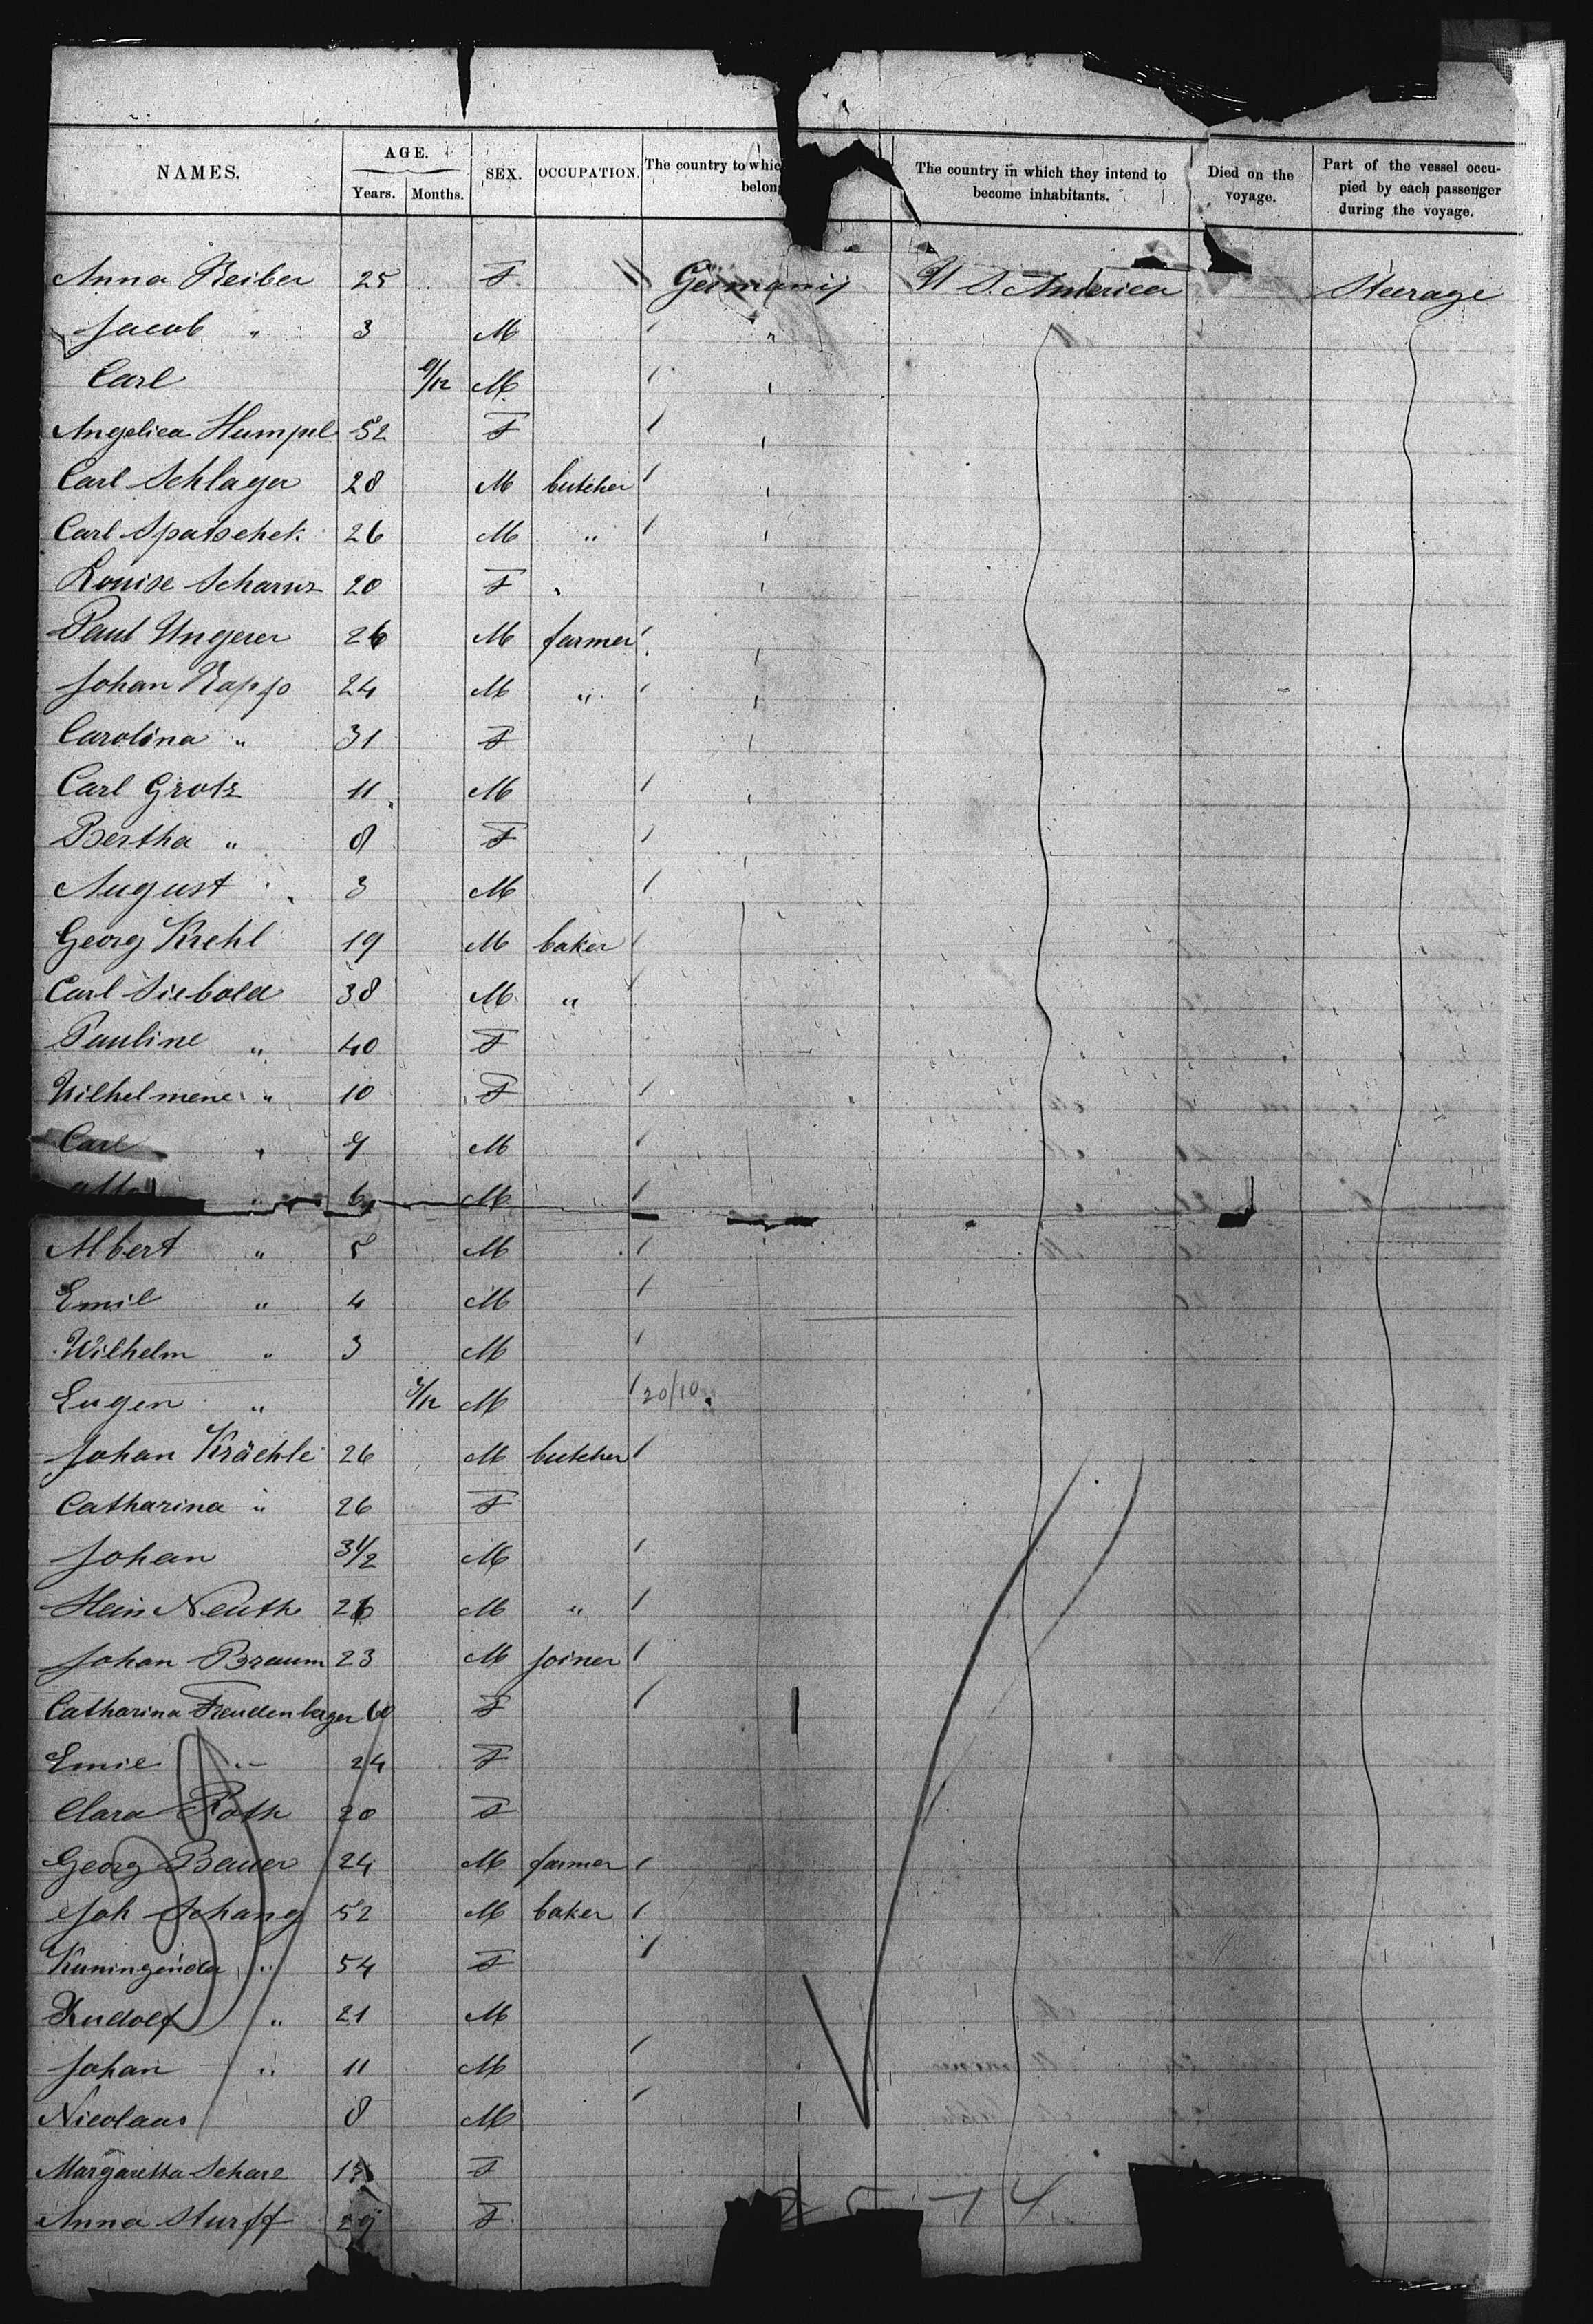 NAMES. AGE. Years. Months. SEX. OCCUPATION. The country to whic belong The country in which they intend to become inhabitants. Died on the voyage. Part of the vessel occupied by each passenger during the voyage.
Anna Reiber 25 F Germany U S. America Steerage
Jacob " 3 M "
Carl M
Angelica Humpel 52 F
Carl Schlager 28 M butcher
Carl Spatschek 26 M "
Louise Scharnz 20 F "
Paul Ungerer 26 M farmer
Johan Rapp 24 M "
Carolina " 31 F
Carl Grotz 11 M
Bertha " 8 F
August " 3 M
Georg Krehl 19 M baker
Carl Siebold 38 M "
Pauline " 40 F
Wilhelmene " 10 F
Carl " 7 M
" 6 M
Albert " 5 M
Emil " 4 M
Wilhelm " 3 M
Eugen " M 20/10
Johan Krächle 26 M butcher
Catharina " 26 F
Johan 3 1/2 M
Hein Neuth 26 M "
Johan Braum 23 M joiner
Catharina Freudenberger 60 F
Emie " 24 F
Clara Roth 20 F
Georg Bauer 24 M farmer
Joh Schang 52 M baker
Kuningenda " 54 F
Rudolf " 21 M
Johan " 11 M
Nicolaus 8 M
Margaretta F
Anna Sturff 29 F